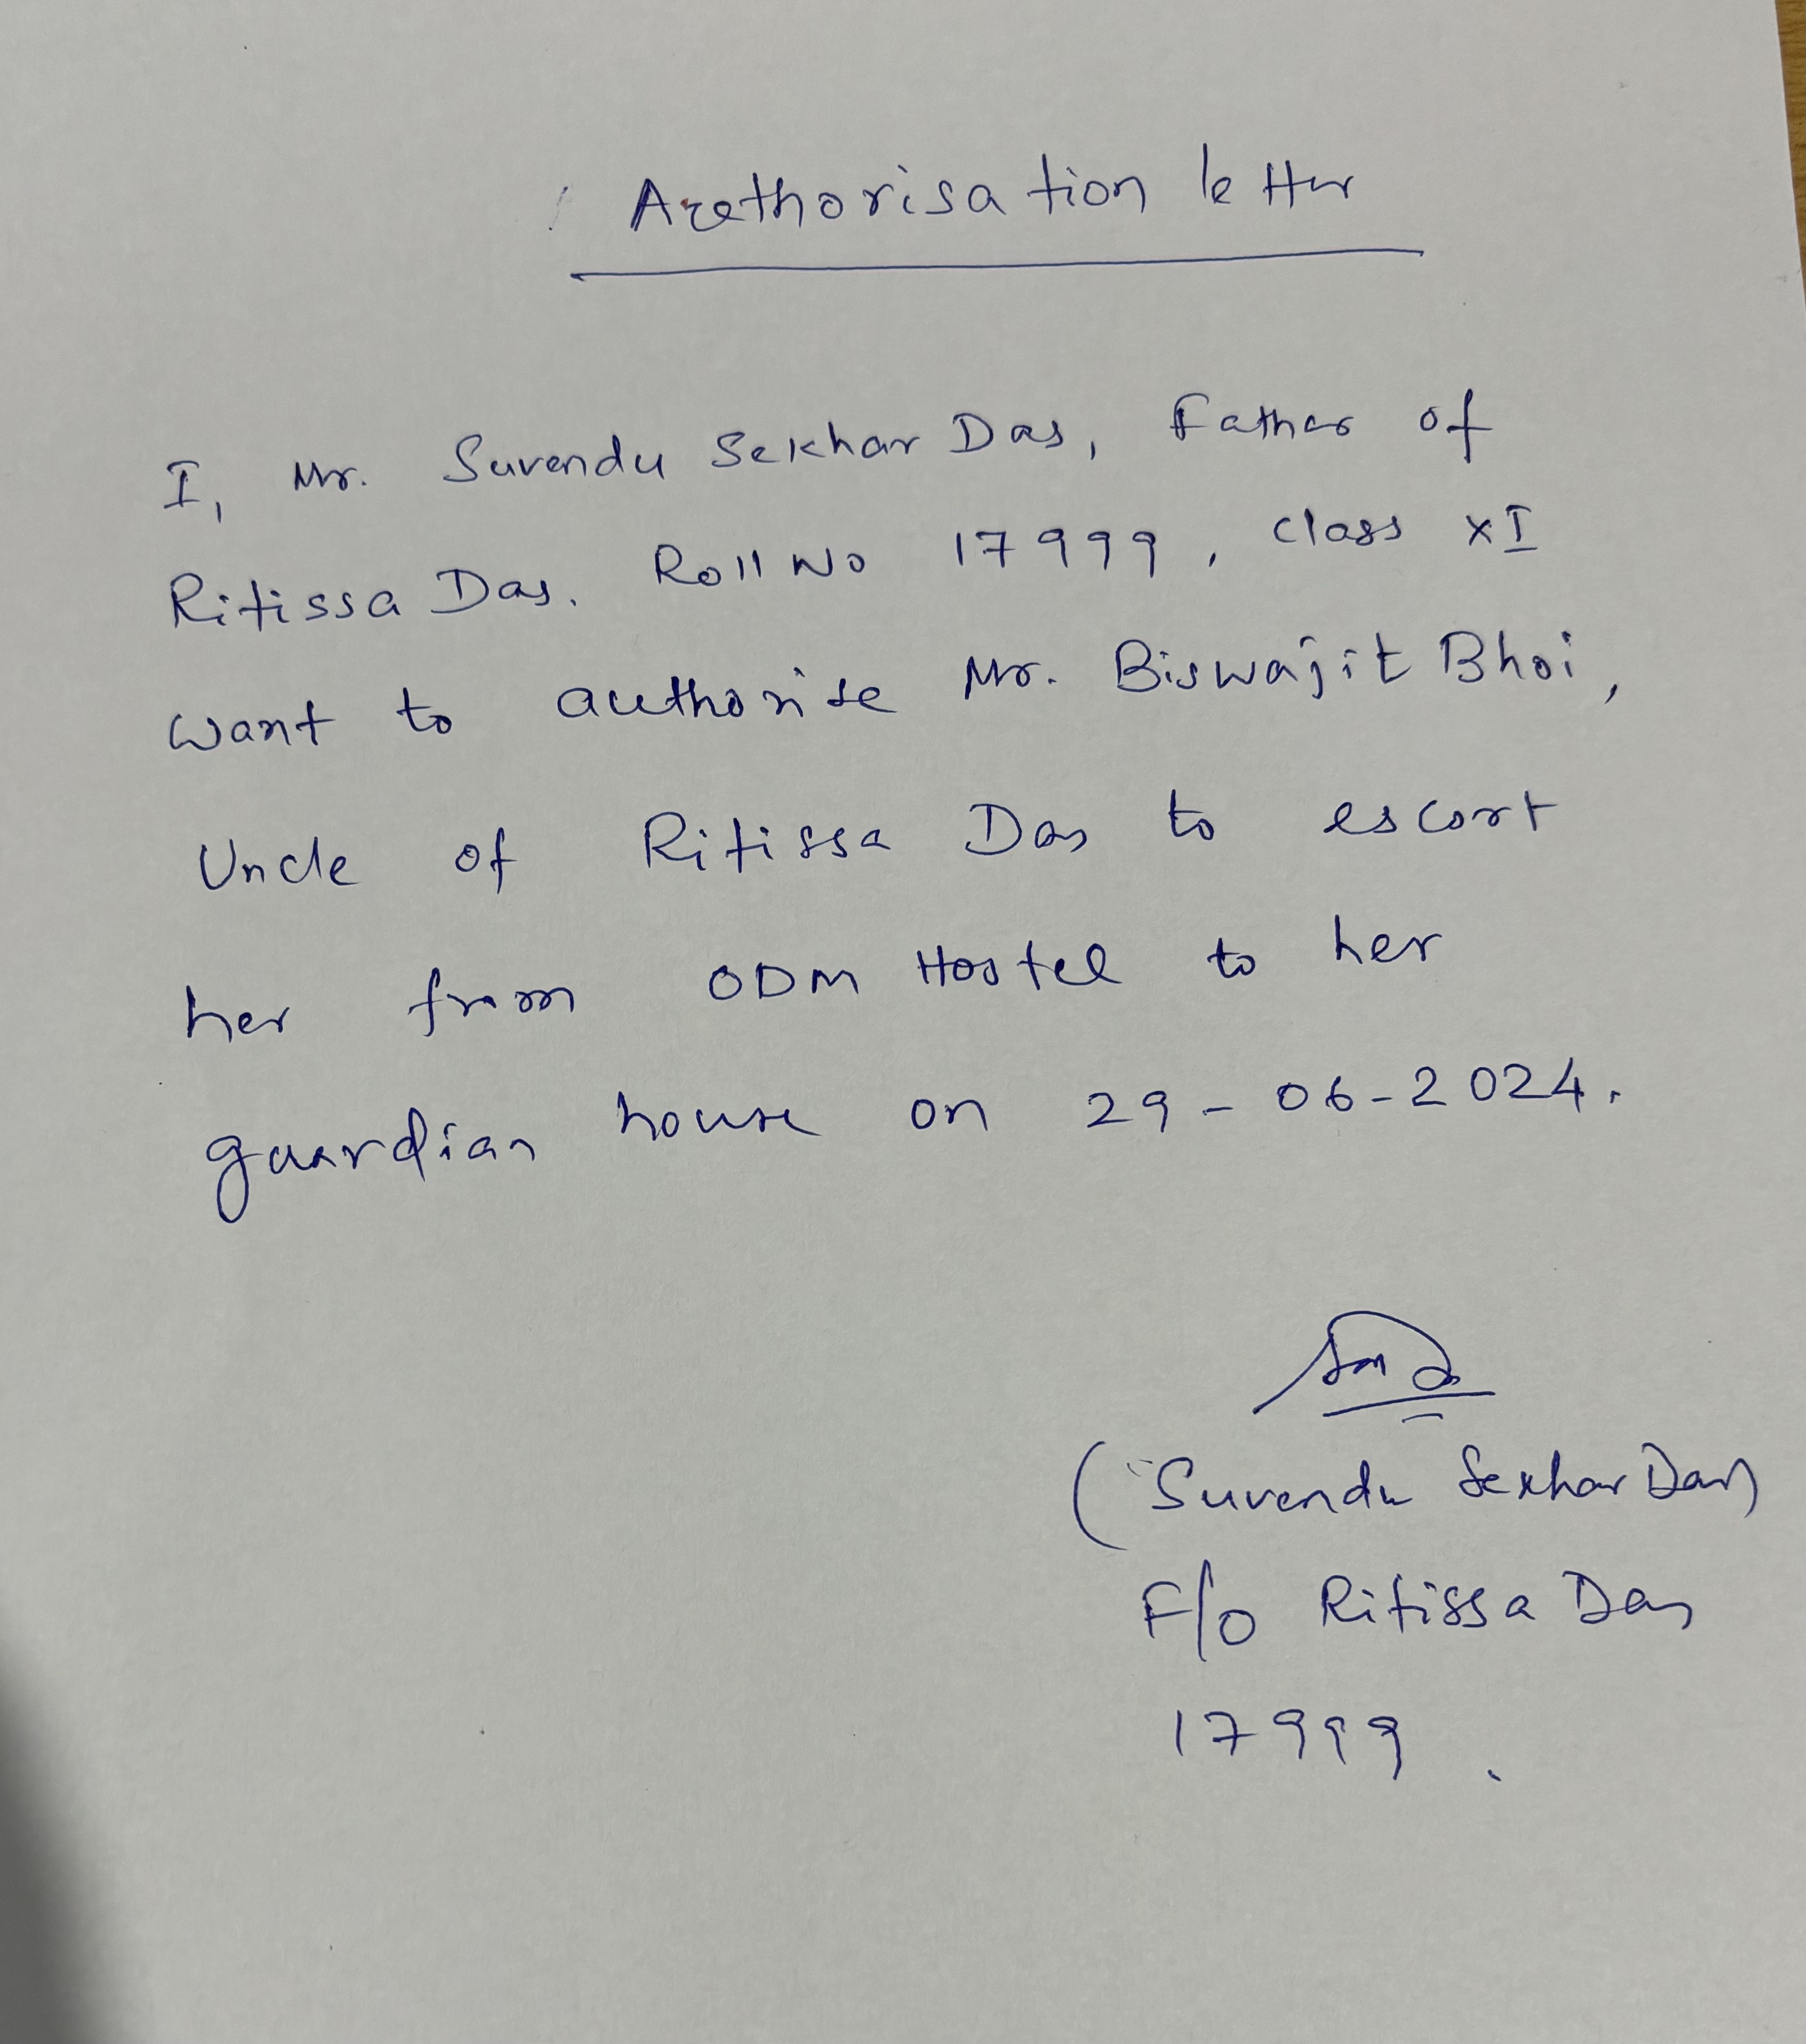 Authorisation letter
I, Mr. Suvendu Sekhar Das, Father of
Ritissa Das. Roll No 17999, class XI
want to authorise Mr. Biswajit Bhoi,
Uncle of Ritissa Das to escort
her from ODM Hostel to her
guardian house on 29-06-2024.
(Suvendu Sekhar Das)
F/o Ritissa Das
17999.